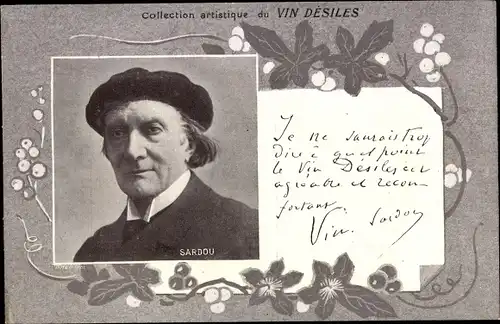 Collection artistique du VIN DÉSILES
SARDOU
Je ne saurais trop
dire à quel point
le Vin Désiles est
agréable et récon-
fortant.
Vin. Sardou